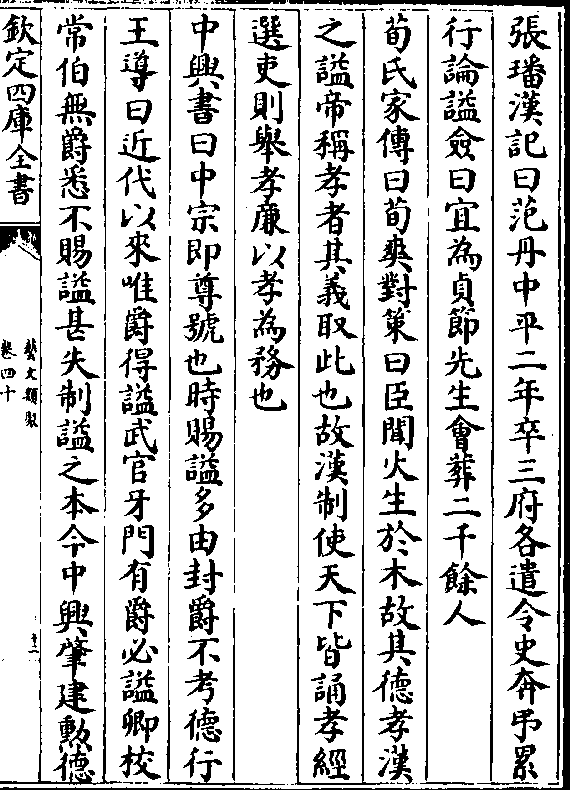 張璠漢記曰范丹中平二年卒三府各遣令史奔弔累
行論謚僉曰宜為貞節先生會葬二千餘人
荀氏家傳曰荀爽對策曰臣聞火生於木故其德孝漢
之謚帝稱孝者其義取此也故漢制使天下皆誦孝經
選吏則舉孝廉以孝為務也
中興書曰中宗即尊號也時賜謚多由封爵不考德行
王導曰近代以來唯爵得謚武官牙門有爵必謚卿校
常伯無爵悉不賜謚甚失制謚之本今中興肇建勲德
欽定四庫全書
藝文類聚
卷四十
十二